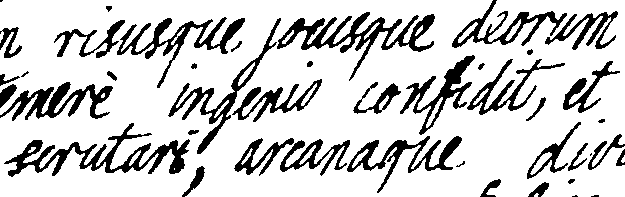 risusque jocusque deorum
temerè ingenio confidit, et
scrutari, arcanaque